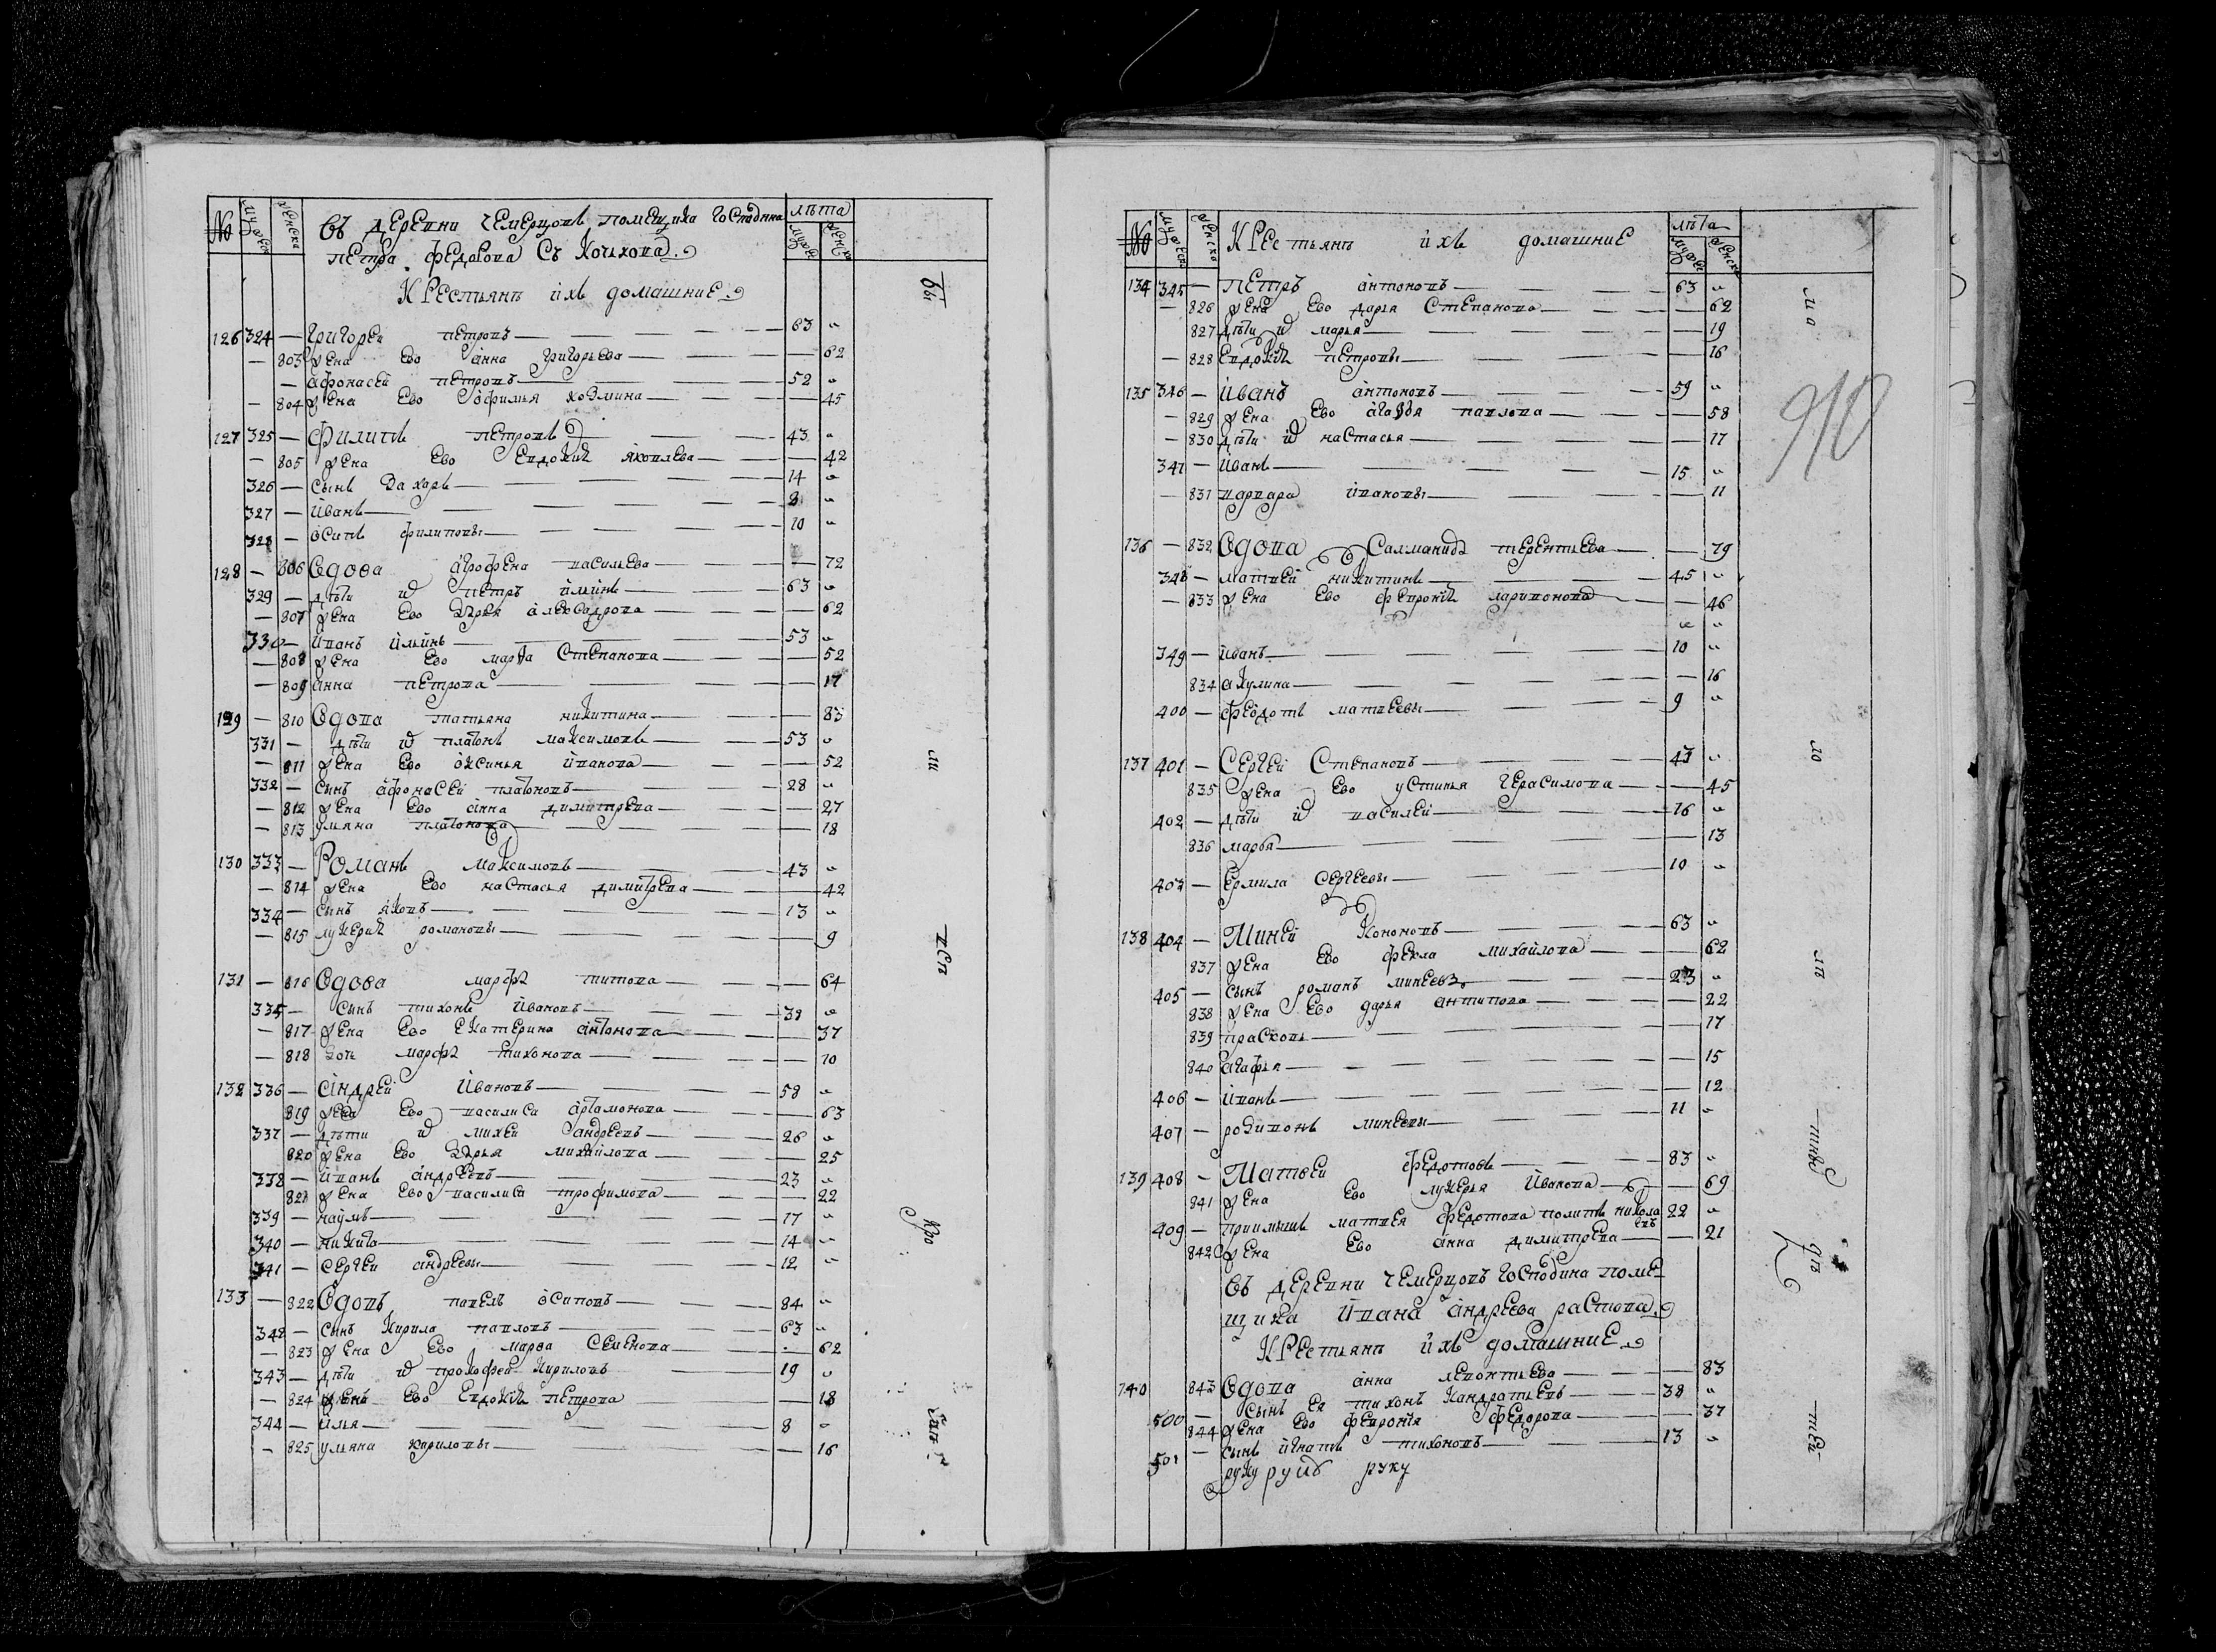 № мужеск женска Въ деревни Чемерцовъ помещика Господина лѣта
Петра Федарова Съ Кочьхова мужеск женска
Крестьянъ ихъ домашние бы
126 324 — Григореи Петровъ — 63 „
— 803 жена Ево Анна Григорьева — 62
— Афонасеи Петровъ — 52 „
— 804 жена Ево Офимья Козмина — 45
127 325 — Филипъ Петровъ — 43 „
— 805 жена Ево Евдокия Яковлева — 42
326 — Сынъ Захаръ — 14 „
327 — Иванъ — 8 „
328 — Осипъ Филиповы — 10 „
128 — 806 Вдова Агрофена Васильева — 72
329 — дѣти Петръ Ильинъ — 63 „
— 807 жена Ево Дарья Алексадрова — 62
330 — Иванъ Ильинъ — 53 „
— 808 жена Ево Марѳа Степанова — 52
— 809 Анна Петрова — 17
129 — 810 Вдова Татьяна Никитина — 83
331 — дѣти Платонъ Максимовъ — 53 „
— 811 жена Ево Оксинья Иванова — 52 ли
332 — Сынъ Афонасеи Платоновъ — 28 „
— 812 жена Ево Анна Димитрева — 27
— 813 Ульяна Платонова — 18
130 333 — Романъ Максимовъ — 43 „
— 814 жена Ево Настасья Димитрева — 42
334 — Сынъ Яковъ — 13 „
— 815 Лукерия Романовы — 9 все
131 — 816 Вдова Марфа Титова — 64
335 — Сынъ Тихонъ Ивановъ — 38 „
— 817 жена Ево Екатерина Антонова — 37
— 818 дочь Марфа Тихонова — 10
132 336 — Андреи Ивановъ — 58 „
819 жена Ево Василиса Артамонова — 63
337 — дѣти Михеи Андреевъ — 26 „
820 жена Ево Дарья Михаилова — 25
338 — Иванъ Андреевъ — 23 „
821 жена Ево Василиса Трофимова — 22
339 — Наумъ — 17 „ кро
340 — Никита — 14 „
341 — Сергеи Андреевы — 12 „
133 — 822 Вдовъ Павелъ Осиповъ — 84 „
342 — Сынъ Кирила Павловъ — 63 „
— 823 жена Ево Марѳа Семенова — 62
343 — дѣти Прокофеи Кириловъ — 19 „
— 824 жена Ево Евдокия Петрова — 18
344 — Илья — 8 „
— 825 Ульяна Кириловы — 16
№ мужеска женска Крестьянъ ихъ домашние лѣта
мужеск женска
134 345 — Петръ Антоновъ — 63 „
— 826 жена Ево Дарья Степанова — 62
827 дѣти Марья — 19
— 828 Евдокия Петровы — 16
910
135 346 — Иванъ Антоновъ — 59 „
— 829 жена Ево Агафья Павлова — 58
— 830 дѣти Настасья — 17
347 — Иванъ — 15 „
— 831 Варвара Ивановы — 11
136 — 832 Вдова Салманида Терентьева — 79
348 — Матвеи Никитинъ — 45 „
— 833 жена Ево Февронья Ларивонова — 46
„ „
349 — Иванъ — 10 „
834 Акулина — 16
400 — Феодотъ Матвеевы — 9 „
137 401 — Сергеи Степановъ — 43 „ ло
835 жена Ево Устинья Герасимова — 45
402 — дѣти Василеи — 16 „
836 Марѳа — 13
403 — Ермила Сергеевы — 10 „
138 404 — Минеи Кононовъ — 63 „
837 жена Ево Фекла Михаилова — 62
405 — Сынъ Романъ Минеевъ — 23 „
838 жена Ево Дарья Антипова — 22
839 Прасковья — 17
840 Агафья — 15
406 — Иванъ — 12
407 — Родивонъ Минеевы — 11 „
139 408 — Матвеи Федотовъ — 83 „
841 жена Ево Лукерья Иванова — 69
409 — Приимышъ Матвея Федотова политъ Никола
евъ 22 „
842 жена Ево Анна Димитрева — 21
Въ деревни Чемерцовъ Господина поме
щика Ивана Андреева Растова
Крестьянъ ихъ домашние
140 843 Вдова Анна Леонтьева — 83
500 — Сынъ Ея Тихонъ Кандратьевъ — 38 „
844 жена Ево Феврония Федорова — 37
501 — Сынъ Игнатъ Тихоновъ — 13 „
руку